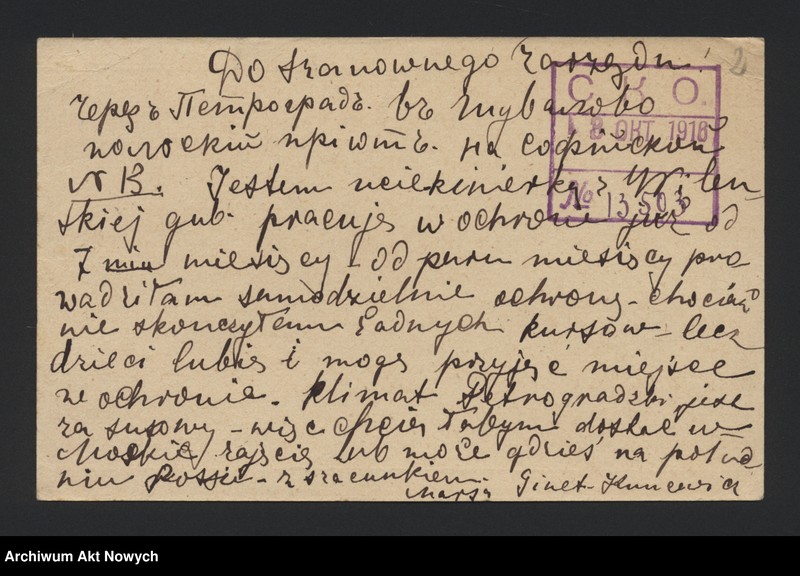 Do szanownego Zarządu
2
черезъ Петроградъ. въ Шувалово
польскій пріютъ. на Софійской
N 13. Jestem uciekinierką z Wileń-
skiej gub. pracuję w ochronie już od
7 mie miesięcy - od paru miesięcy pro-
wadziłam samodzielnie ochronę - chociaż
nie skończyłam żadnych kursów - lecz
dzieci lubię i mogę przyjąć miejsce
w ochronie. Klimat Petrogradzki jest
za surowy - więc chciałabym dostać w
Moskwie zajęcie lub może gdzieś na połud-
niu Rossii - z szacunkiem.
Marja Ginet-Kuncewicz
C. K. O.
18 ОКТ. 1916
№ 13503
Archiwum Akt Nowych